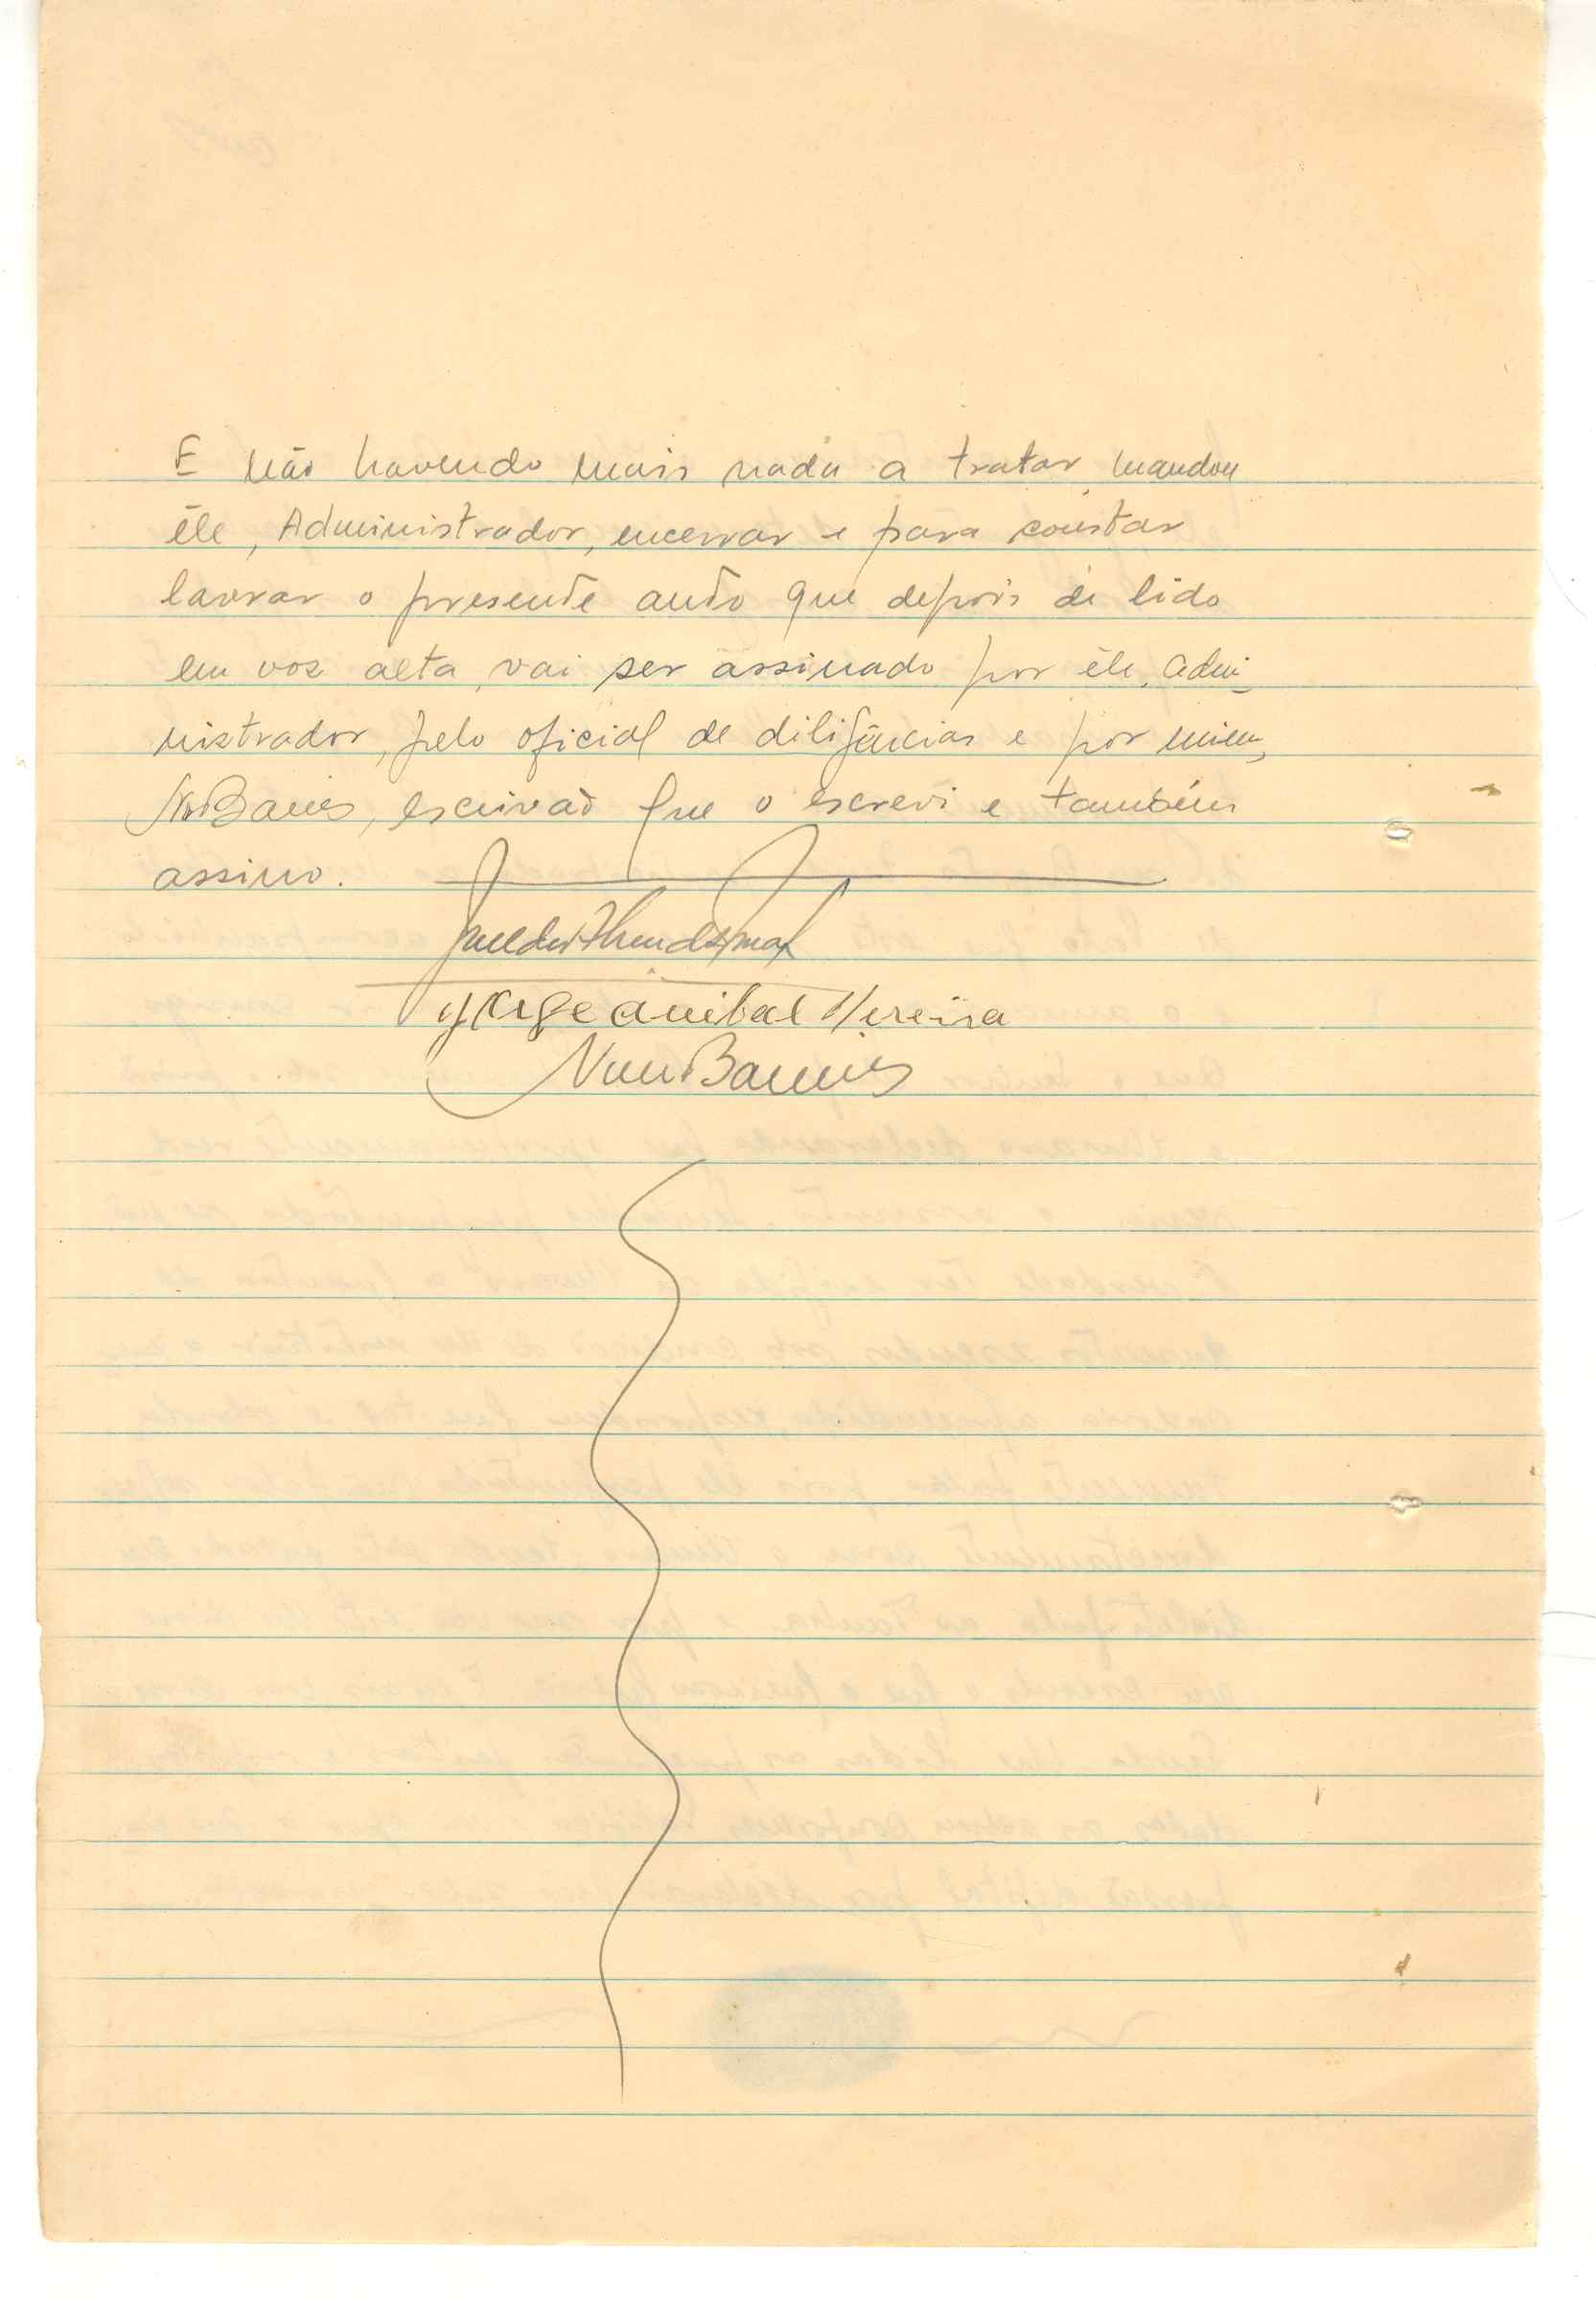 E não havendo mais nada a tratar, mandou
êle, Administrador, encerrar e para constar
lavrar o presente auto que depois de lido
em voz alta, vai ser assinado por êle, Admi-
nistrador, pelo oficial de diligências e por mim,
escrivão que o escrevi e também
assino.
Jorge Anibal Pereira